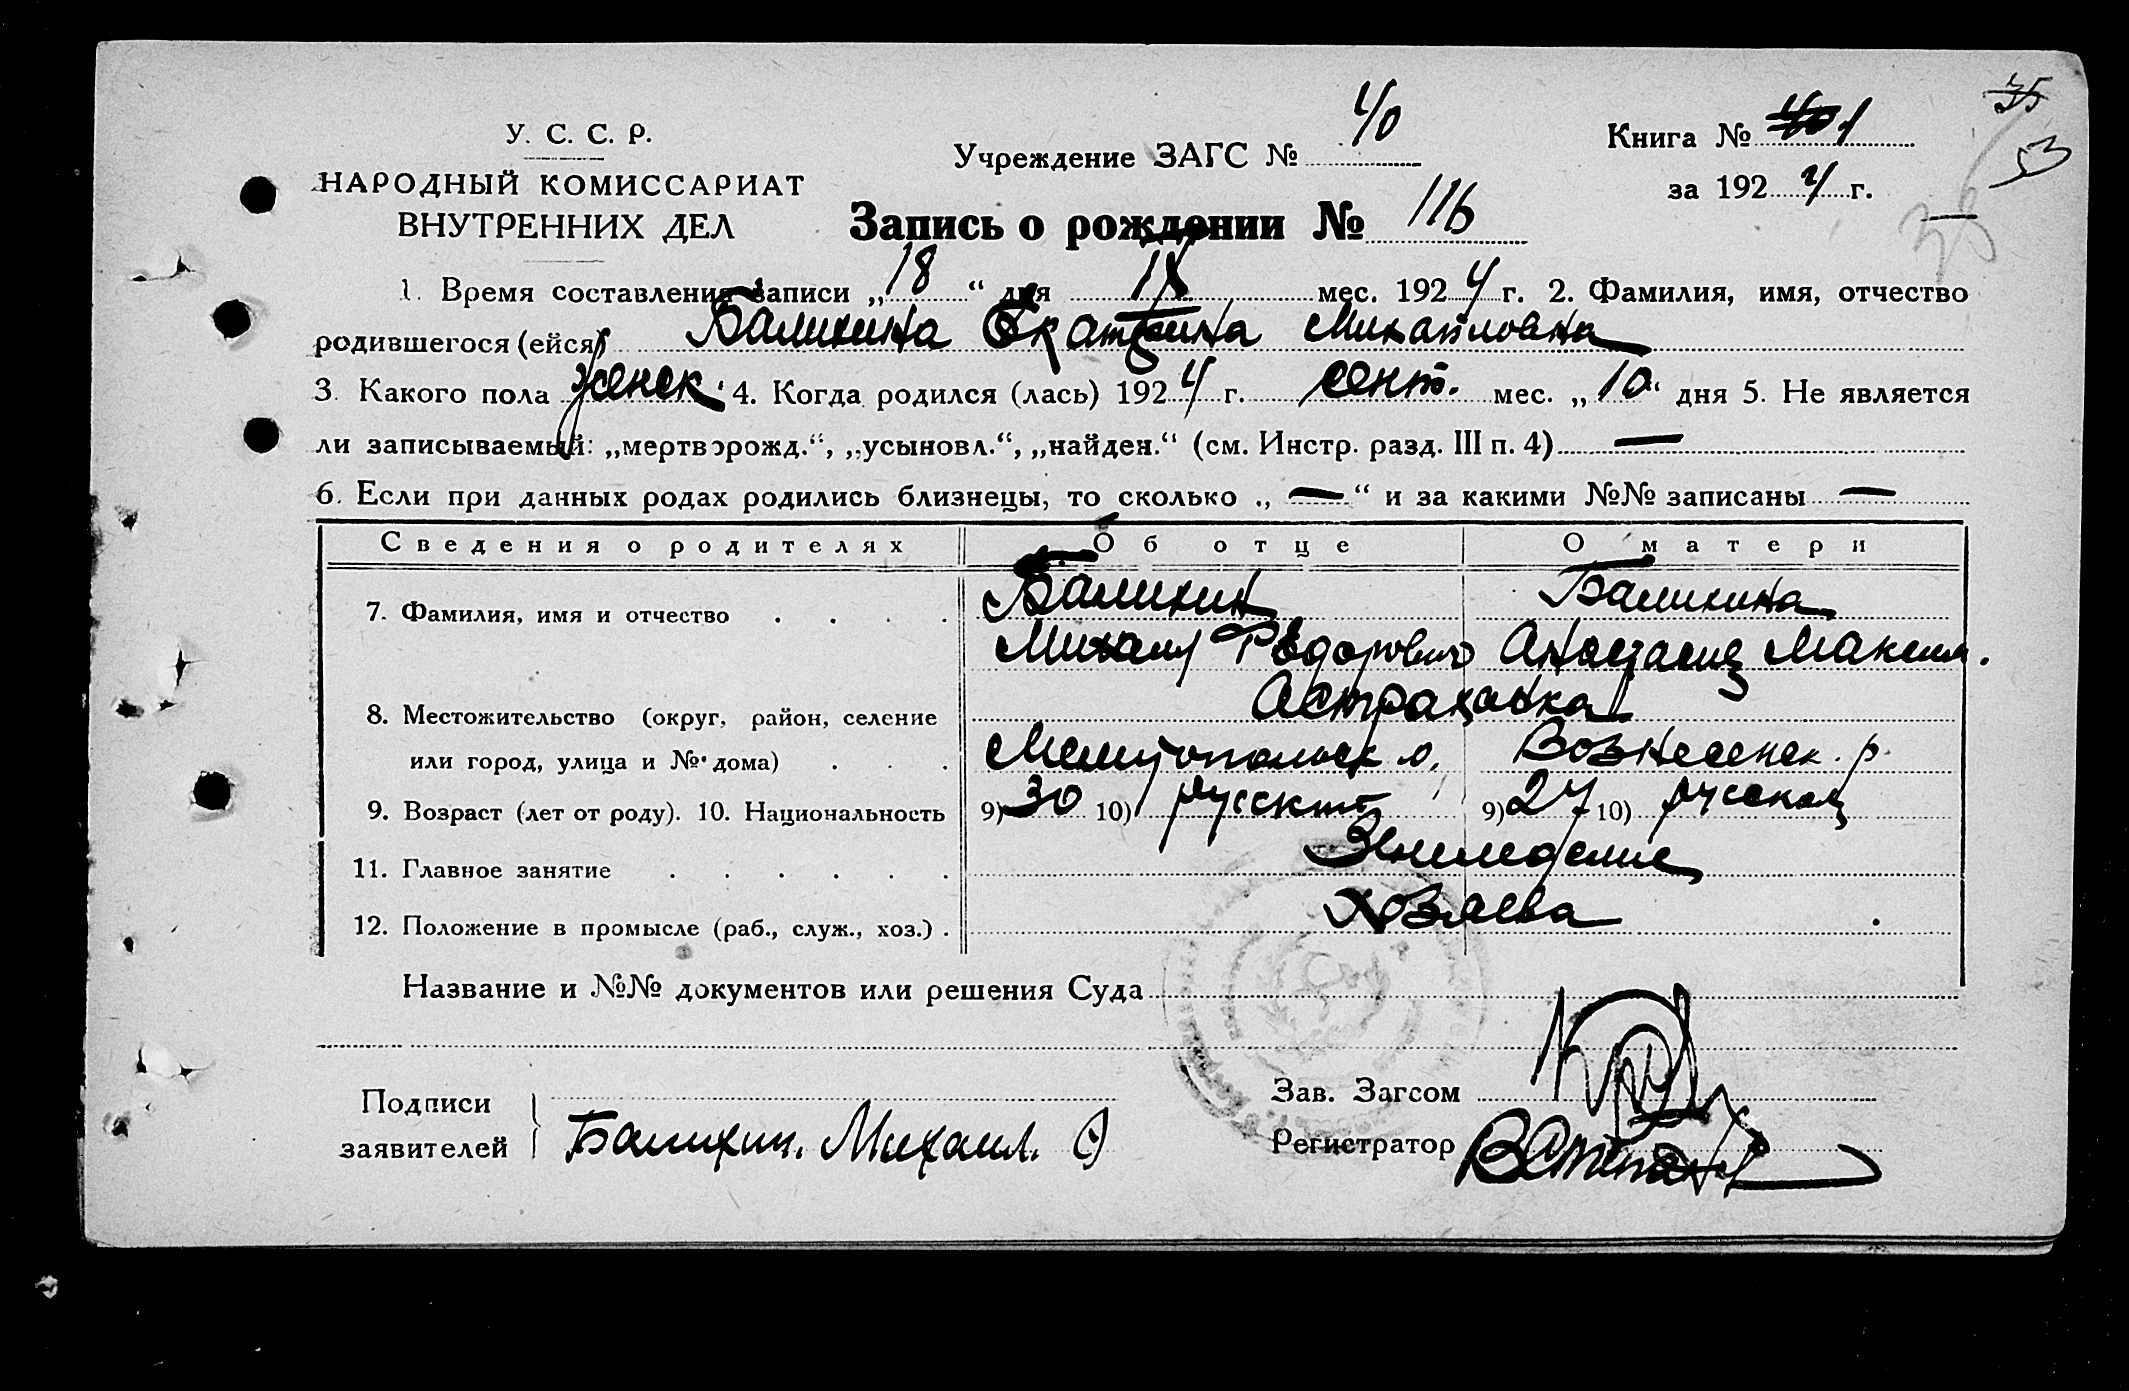 У. С. С. Р.
НАРОДНЫЙ КОМИССАРИАТ
ВНУТРЕННИХ ДЕЛ
Учреждение ЗАГС № 40
Книга № 1
за 1924 г.
53
Запись о рождении № 116
1. Время составления записи „18“ дня IX мес. 1924 г. 2. Фамилия, имя, отчество
родившегося (ейся) Балихина Екатерина Михайловна
3. Какого пола женск 4. Когда родился (лась) 1924 г. сент. мес. „10“ дня 5. Не является
ли записываемый: „мертворожд.“, „усыновл.“, „найден.“ (см. Инстр. разд. III п. 4) —
6. Если при данных родах родились близнецы, то сколько „—“ и за какими №№ записаны —
Сведения о родителях Об отце О матери
7. Фамилия, имя и отчество . . . . Балихин Балихина
Михаил Федорович Анастасия Максим.
8. Местожительство (округ, район, селение Астраханка
или город, улица и № дома) . . . Мелитопольск о. Вознесенск. р.
9. Возраст (лет от роду). 10. Национальность 9) 30 10) русский 9) 27 10) русская
11. Главное занятие . . . . . . Земледелие
12. Положение в промысле (раб., служ., хоз.) . Хозяева
Название и №№ документов или решения Суда
Подписи
заявителей Балихин. Михаил. Ф
Зав. Загсом
Регистратор